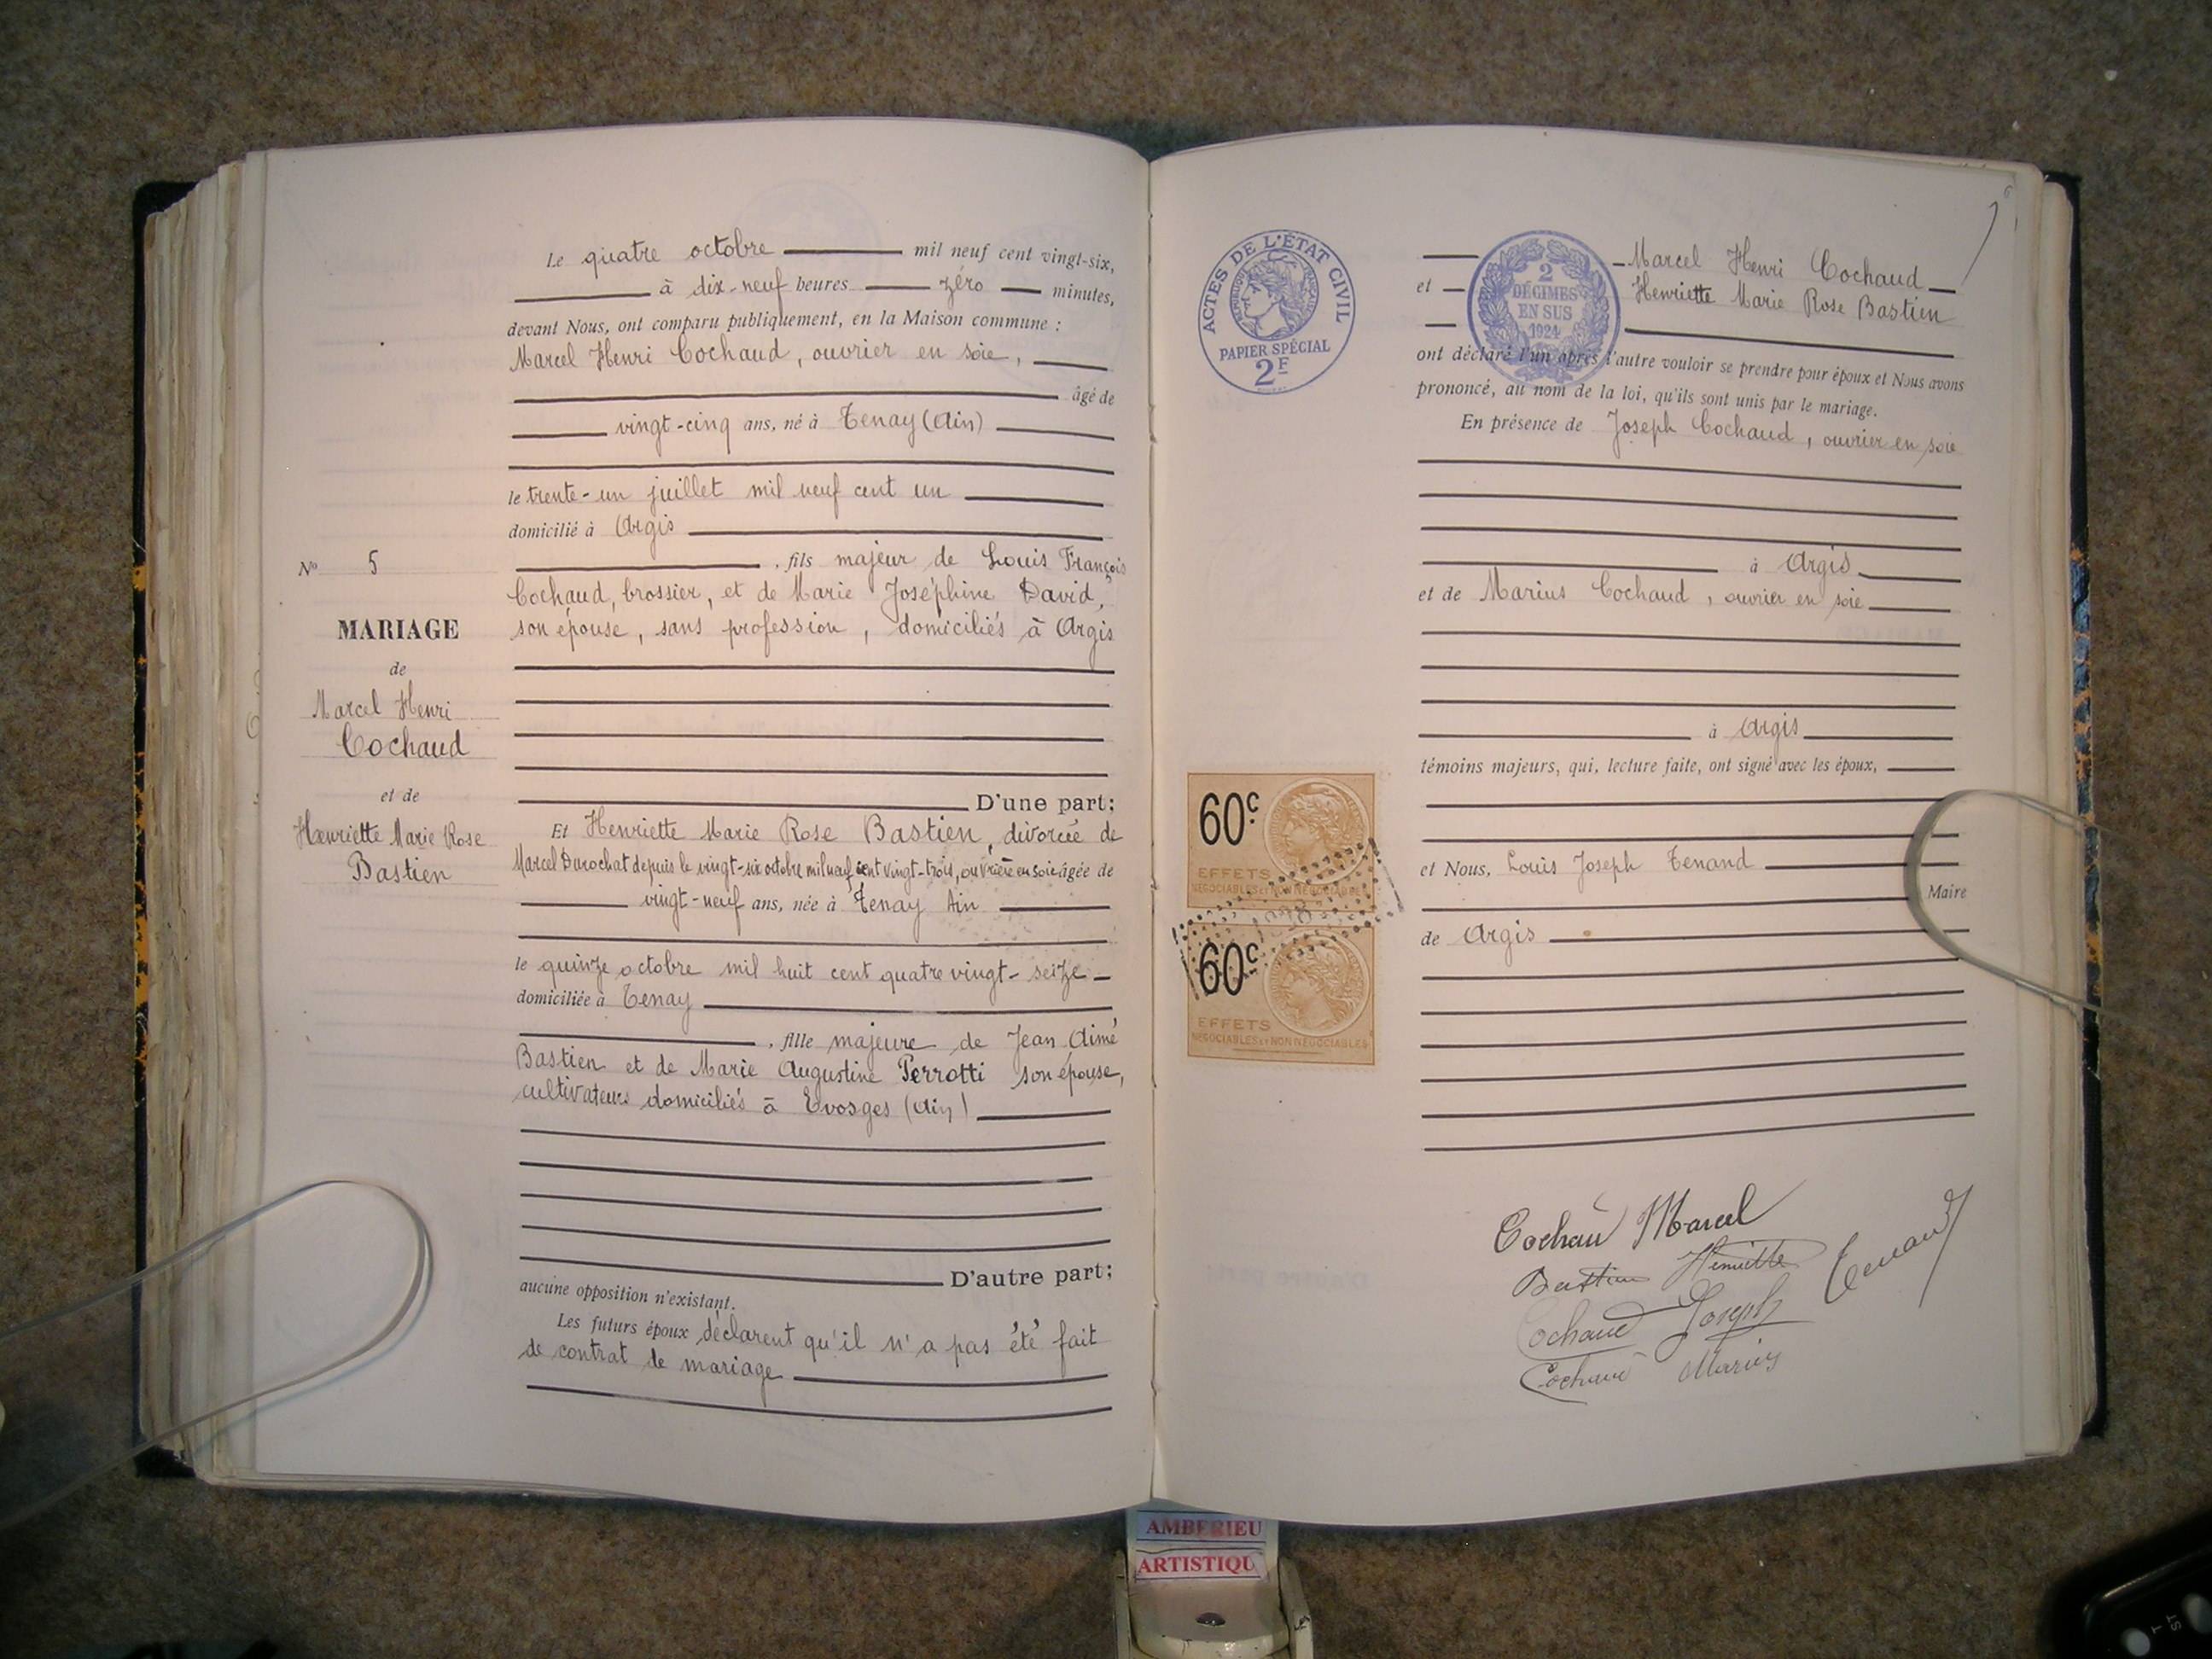 Le quatre octobre mil neuf cent vingt-six,
à dix-neuf heures zéro minutes,
devant Nous, ont comparu publiquement, en la Maison commune :
Marcel Henri Cochaud, ouvrier en soie,
âgé de
vingt-cinq ans, né à Tenay (Ain)
le trente-un juillet mil neuf cent un
domicilié à Argis
, fils majeur de Louis François
Cochaud, brossier, et de Marie Joséphine David,
son épouse, sans profession, domiciliés à Argis
D'une part;
Et Henriette Marie Rose Bastien, divorcée de
Marcel Durochat depuis le vingt-six octobre mil neuf cent vingt-trois, ouvrière en soie âgée de
vingt-neuf ans, née à Tenay Ain
le quinze octobre mil huit cent quatre vingt-seize
domiciliée à Tenay
, fille majeure de Jean Aimé
Bastien et de Marie Augustine Perrotti son épouse,
cultivateurs domiciliés à Evosges (Ain)
D'autre part;
aucune opposition n'existant.
Les futurs époux déclarent qu'il n'a pas été fait
de contrat de mariage
N° 5
MARIAGE
de
Marcel Henri
Cochaud
et de
Henriette Marie Rose
Bastien
ACTES DE L'ÉTAT CIVIL
RÉPUBLIQUE FRANÇAISE
PAPIER SPÉCIAL
2F
2
DÉCIMES
EN SUS
1924
Marcel Henri Cochaud
et Henriette Marie Rose Bastien
ont déclaré l'un après l'autre vouloir se prendre pour époux et Nous avons
prononcé, au nom de la loi, qu'ils sont unis par le mariage.
En présence de Joseph Cochaud, ouvrier en soie
à Argis
et de Marius Cochaud, ouvrier en soie
à Argis
témoins majeurs, qui, lecture faite, ont signé avec les époux,
et Nous, Louis Joseph Tenand
Maire
de Argis
60c
EFFETS
NÉGOCIABLES ET NON NÉGOCIABLES
60c
EFFETS
NÉGOCIABLES ET NON NÉGOCIABLES
Cochau Marcel
Bastien Henriette
Tenand
Cochaud Joseph
Cochaud Marius
AMBERIEU
ARTISTIQU